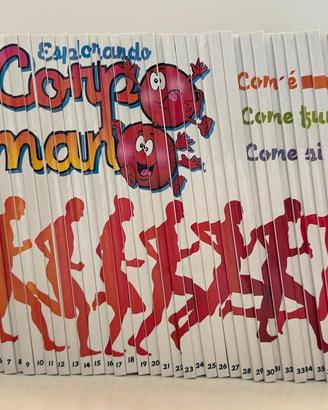 Esplorando
Corpo
Com'è
Come
Come si
6 7 8 9 10 11 12 13 14 15 16 17 18 19 20 21 22 23 24 25 26 27 28 29 30 31 32 33 34 35